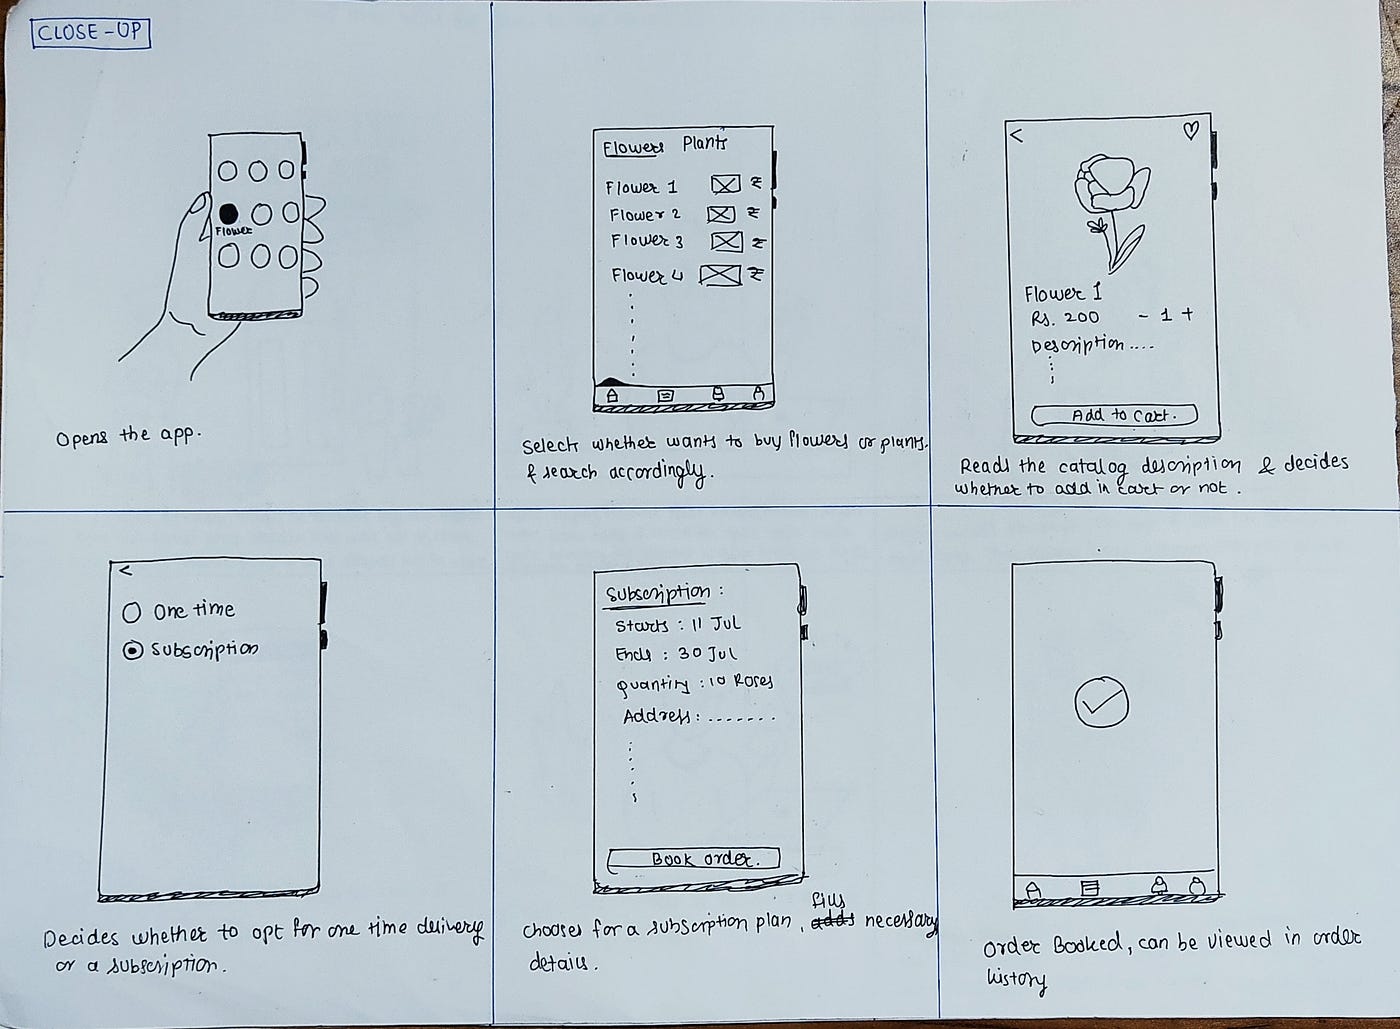 CLOSE-UP
Flower
Opens the app.
Flowers Plants
Flower 1 ₹
Flower 2 ₹
Flower 3 ₹
Flower 4 ₹
Select whether wants to buy flowers or plants.
& search accordingly.
<
Flower 1
Rs. 200 - 1 +
Description ....
Add to cart.
Reads the catalog description & decides
whether to add in cart or not.
<
One time
Subscription
Decides whether to opt for one time delivery
or a subscription.
Subscription :
Starts : 11 Jul
Ends : 30 Jul
Quantity : 10 Roses
Address : .......
Book order.
fills
Chooses for a subscription plan, adds necessary
details.
Order Booked, can be viewed in order
history